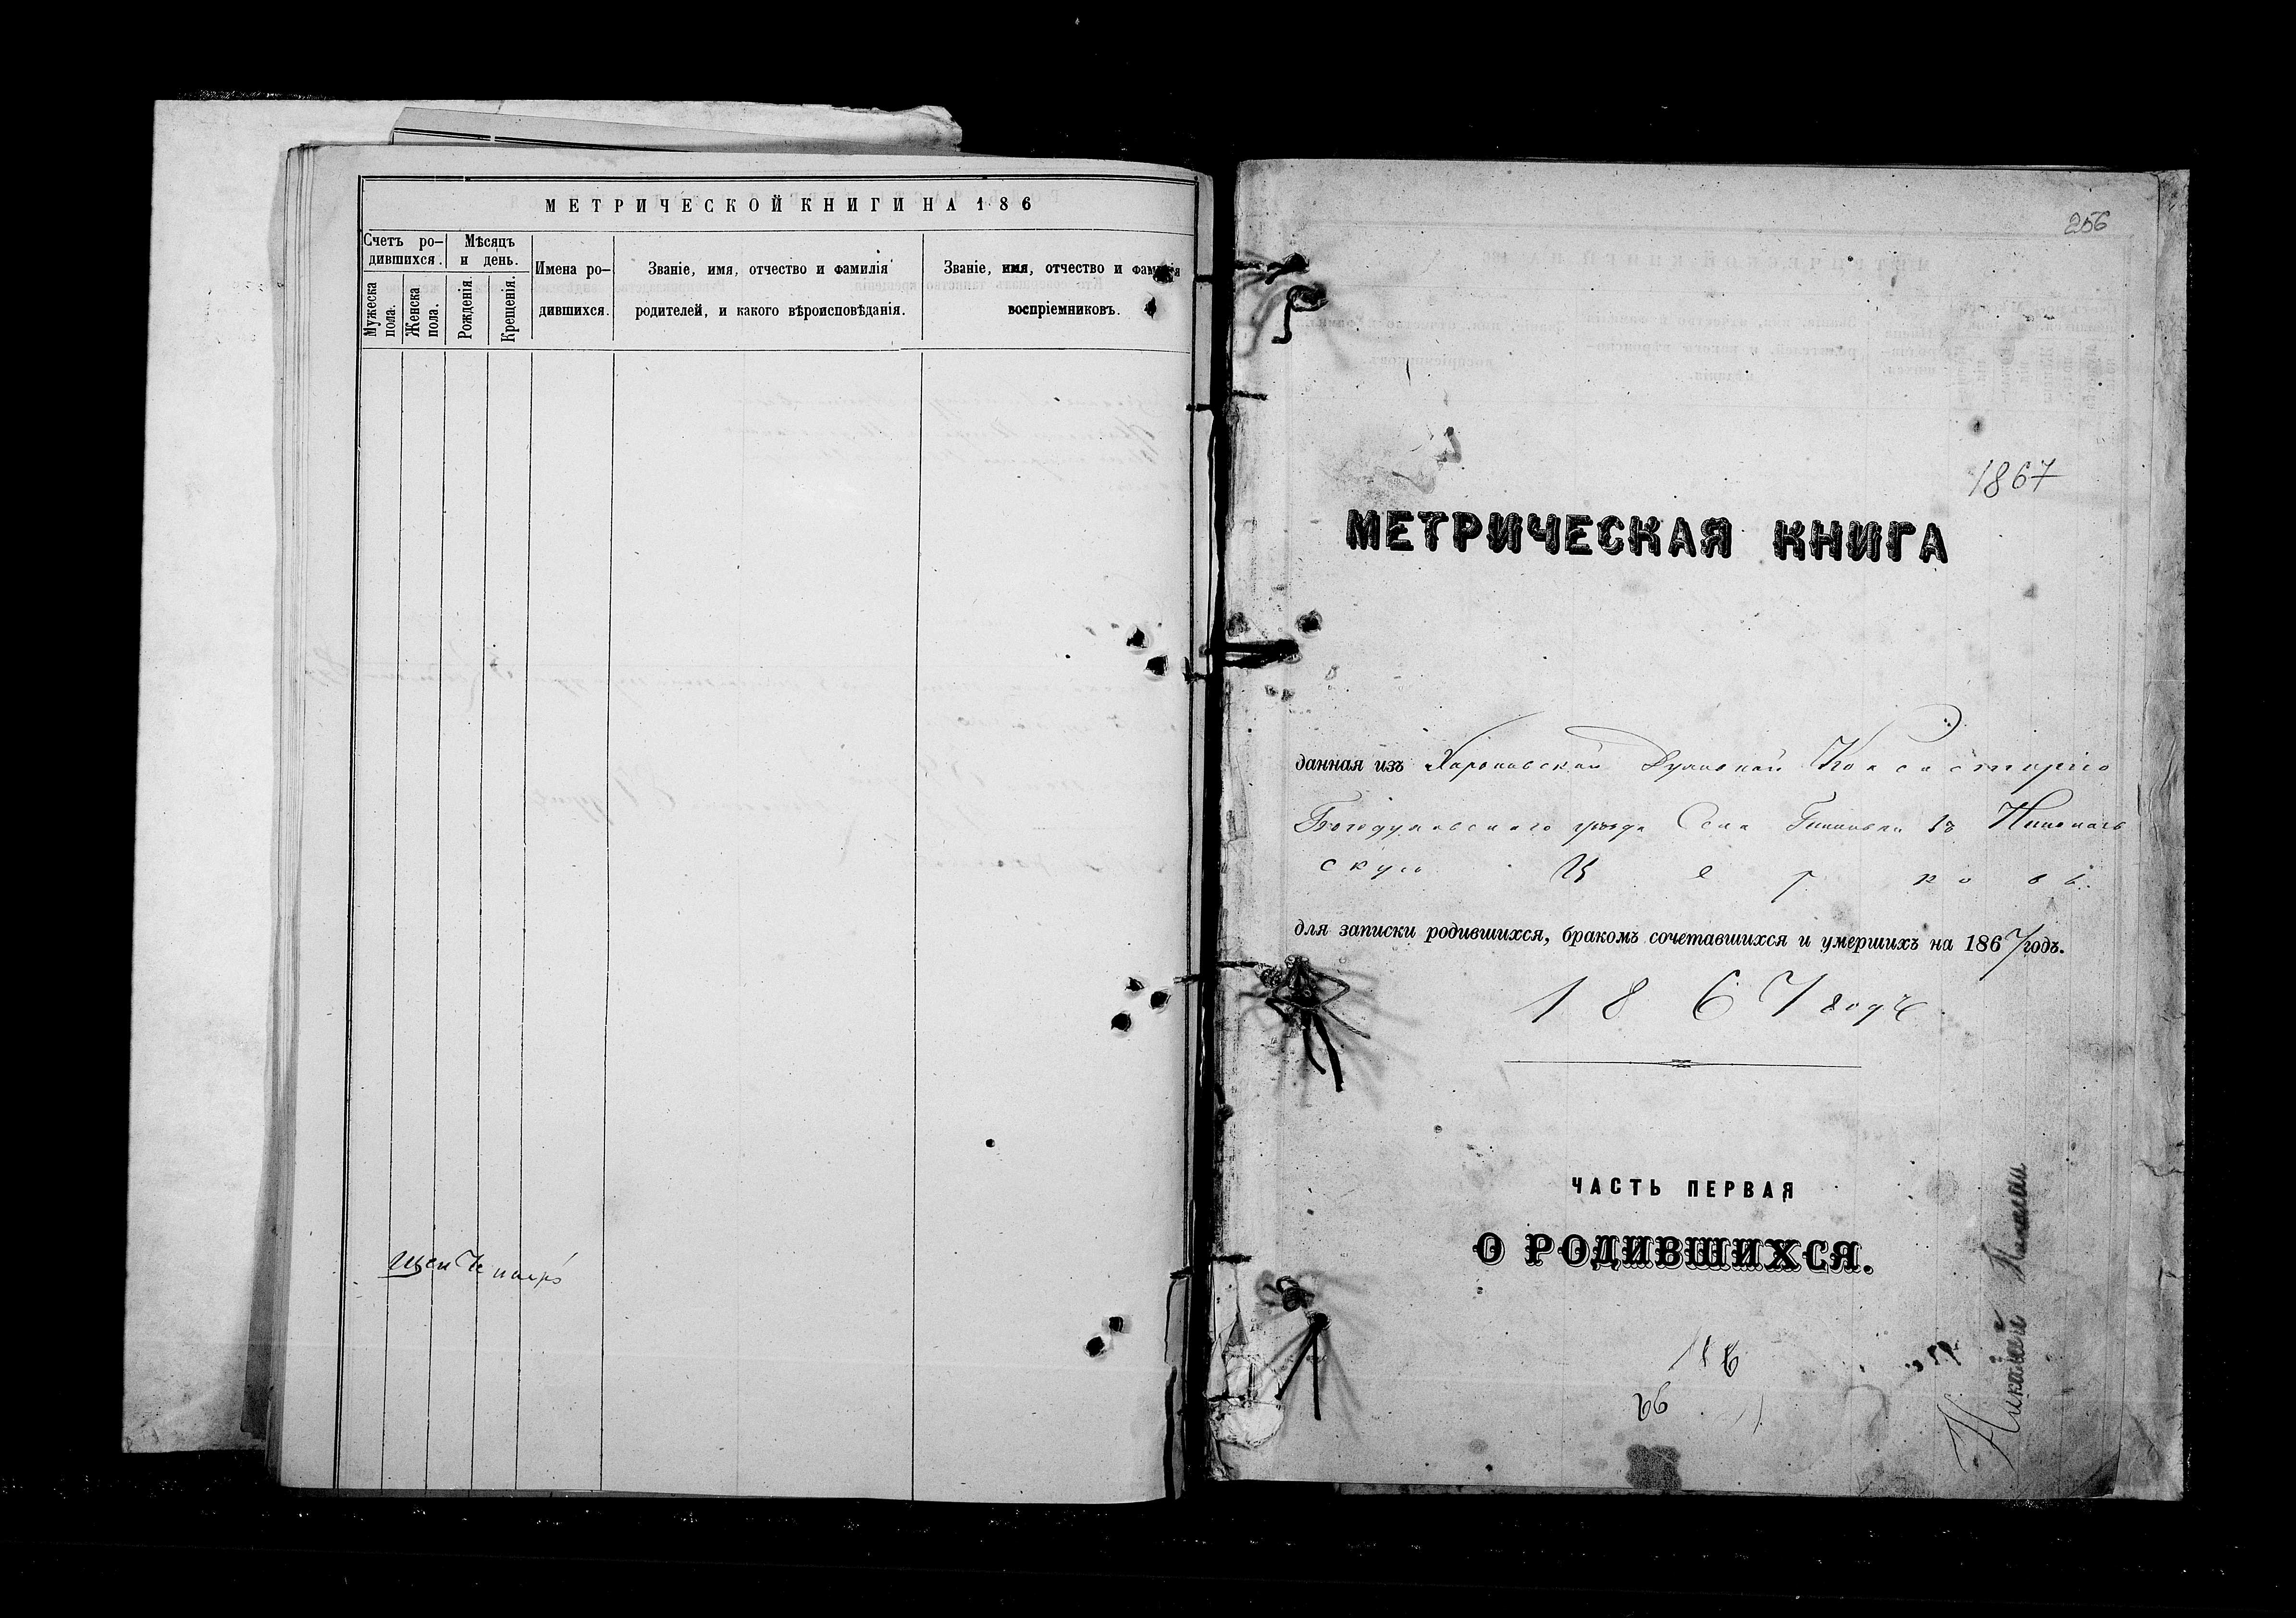 МЕТРИЧЕСКОЙ КНИГИ НА 186
Счетъ ро-
дившихся.
Мѣсяцъ
и день.
Мужеска
пола.
Женска
пола.
Рожденія.
Крещенія.
Имена ро-
дившихся.
Званіе, имя, отчество и фамилія
родителей, и какого вѣроисповѣданія.
Званіе, имя, отчество и фамилія
воспріемниковъ.
256
1867
МЕТРИЧЕСКАЯ КНИГА
данная изъ Харьковской Духовной Консисторіи
Богодуховскаго уѣзда Села въ Николаев
скую Церковь.
для записки родившихся, бракомъ сочетавшихся и умершихъ на 1867 годъ.
1867 годъ
ЧАСТЬ ПЕРВАЯ
О РОДИВШИХСЯ.
Николай